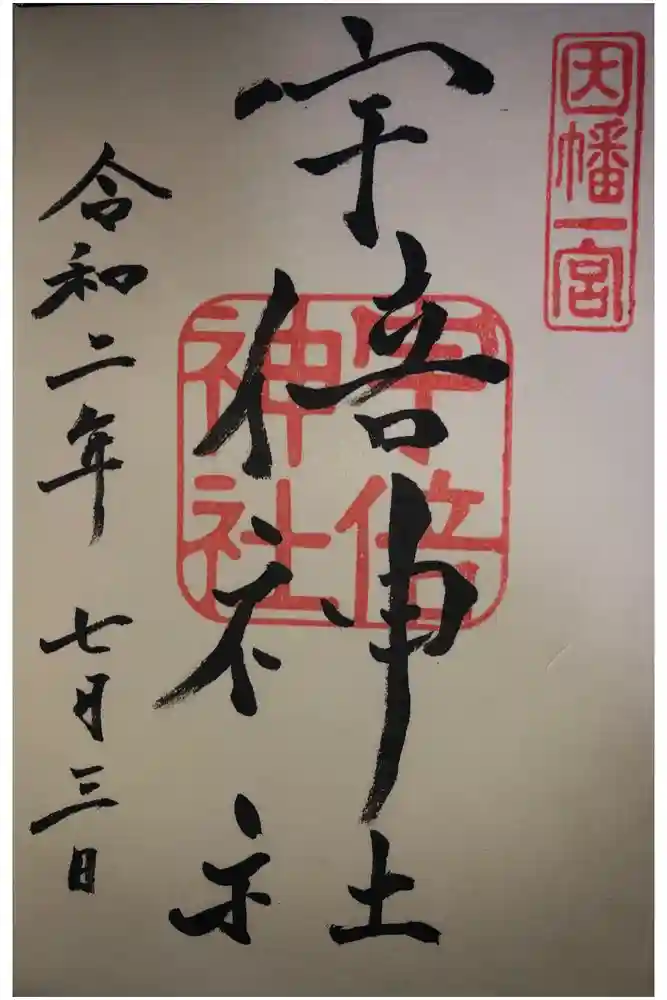 因幡一宮
宇倍神社
宇倍神社
令和二年 七月三日